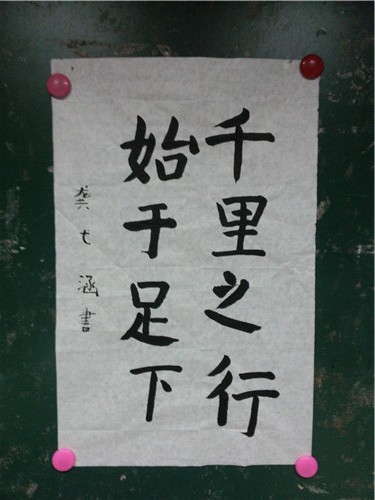 千里之行
始于足下
龚弋涵書